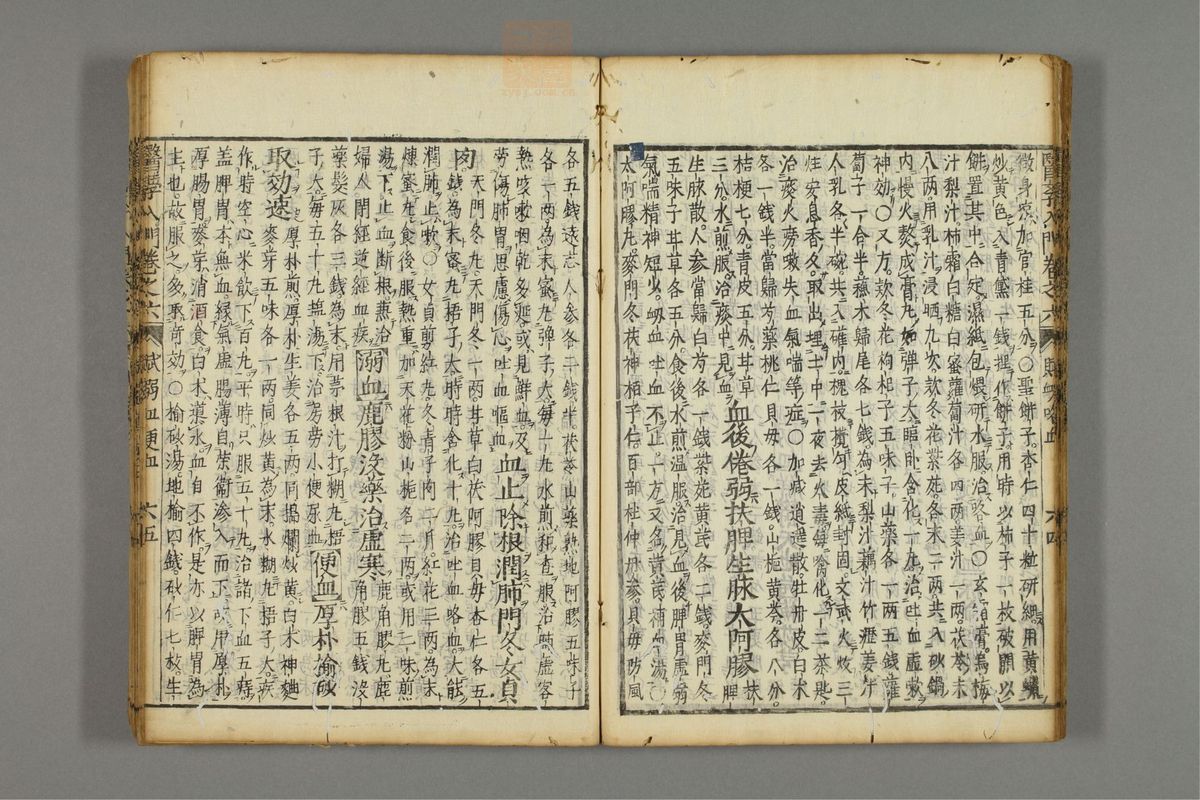 微身寒加官桂五分○聖餅子杏仁四十粒研細用黃蠟
炒黃色入青黛一錢捏作餅子用時以柿子一枚破開以
餅置其中合定濕紙包煨研水服治咯血○玄霜膏烏梅
汁梨汁柿霜白糖白蜜蘿蔔汁各四兩姜汁一兩茯苓末
八兩用乳汁浸晒九次款冬花紫菀各末二兩共入砂鍋
內慢火熬成膏丸如彈子大臨卧含化一丸治吐血虛嗽
神効○又方款冬花枸杞子五味子山藥各一兩五錢蘿
蔔子一合半蘇木歸尾各七錢為末梨汁藕汁竹瀝姜汁
人乳各半碗共入磁內槐枝攪勻皮紙封固文武火炆三
炷安息香久取出埋土中一夜去火毒每噙化一二茶匙
治痰火旁嗽失血氣喘等症○加減逍遙散牡丹皮白朮
各一錢半當歸芍藥桃仁貝母各一錢山梔黃芩各八分
桔梗七分青皮五分甘草
三分水煎服治痰中見血 血後倦弱扶脾生脉大阿膠 扶脾
生脉散人參當歸白芍各一錢紫菀黃芪各二錢麥門冬
五味子甘草各五分食後水煎温服治見血後脾胃虛弱
氣喘精神短少衂血吐血不止一方又名黃芪補血湯○
太阿膠丸麥門冬茯神栢子仁百部杜仲丹參貝母防風
醫學入門卷之六 六四
各五錢遠志人參各二錢半茯苓山藥熟地阿膠五味子
各一兩為末蜜丸彈子大每十丸水煎和查服治肺虛客
熱咳嗽咽乾多涎或見鮮血及
勞傷肺胃思慮傷心吐血嘔血 血止除根潤肺門冬女貞
肉 天門冬丸天門冬一兩甘草白茯阿膠貝母杏仁各五
錢為末蜜丸梧子大時時含化十丸治吐血咯血大能
潤肺止嗽○女貞剪紅丸冬青子肉二斤紅花三兩為末
煉蜜丸食後服熱重加天花粉山梔各二兩或用二味煎
湯下止血斷根熱治
婦人閉經逆經血疾 溺血鹿膠沒藥治虛寒 鹿角膠丸鹿角膠五錢沒
藥髮灰各三錢為末用茅根汁打糊丸梧
子大每五十丸塩湯下治房勞小便尿血 便血厚朴榆砂
取効速 厚朴煎厚朴生姜各五兩同搗爛炒黃白朮神麯
麥芽五味各一兩同炒黃為末水糊丸梧子大疾
作時空心米飲下百丸平時只服五十丸治諸下血五藏
盖腸胃本無血緣氣虛腸薄自荣衛滲入而下故用厚朴
厚腸胃麥芽消酒食白朮藁永血自不作是亦以脾胃為
主也故服之多取奇効○榆砂湯地榆四錢砂仁七枚生
醫學入門卷之六 賦溺血便血 六五